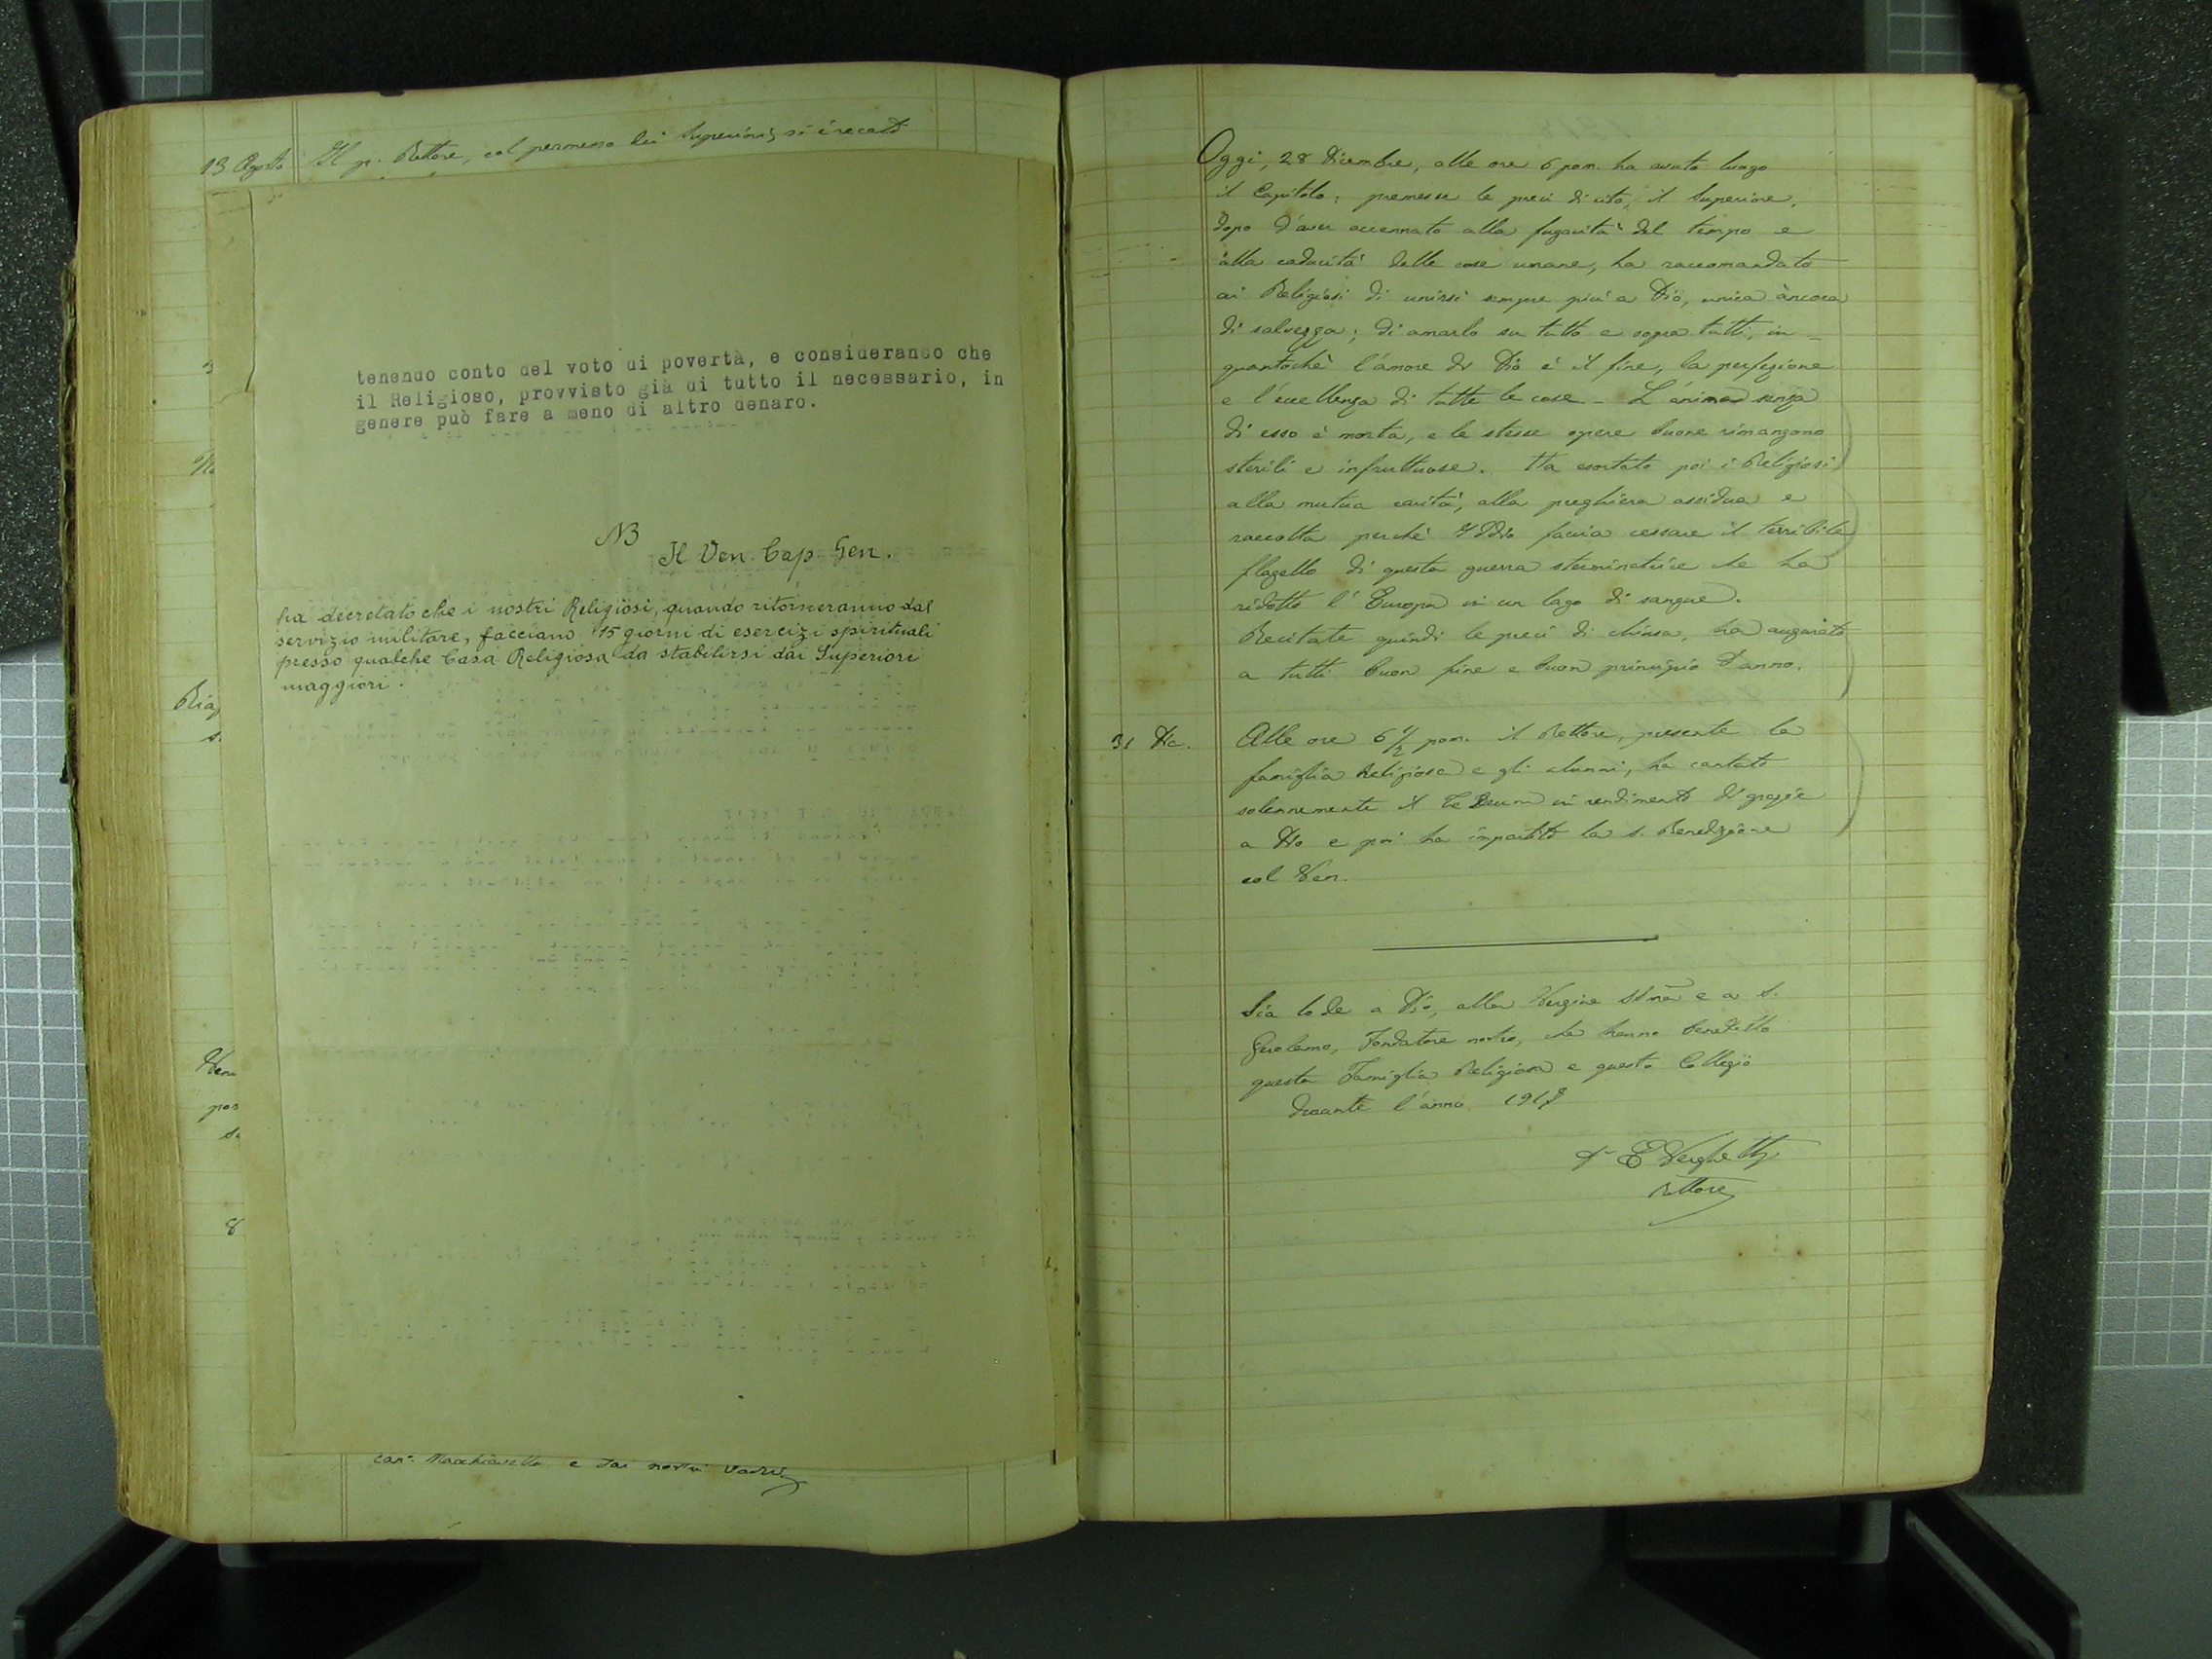 13 Agosto Il p. Rettore, col permesso dei Superiori, si è recato
tenendo conto del voto di povertà, e considerando che
il Religioso, provvisto già di tutto il necessario, in
genere può fare a meno di altro denaro.
NB
Il Ven. Cap. Gen.
ha decretato che i nostri Religiosi, quando ritorneranno dal
servizio militare, facciano 15 giorni di esercizi spirituali
presso qualche Casa Religiosa da stabilirsi dai Superiori
maggiori.
8
e dai nostri Padri
Oggi, 28 Dicembre, alle ore 6 pom. ha avuto luogo
il Capitolo: premesse le preci di rito, il Superiore,
dopo d'aver accennato alla fugacità del tempo e
alla caducità delle cose umane, ha raccomandato
ai Religiosi di unirsi sempre più a Dio, unica àncora
di salvezza; di amarlo su tutto e sopra tutti, in-
quantochè l'amore di Dio è il fine, la perfezione
e l'eccellenza di tutte le cose - L'anima senza
di esso è morta, e le stesse opere buone rimangono
sterili e infruttuose. Ha esortato poi i Religiosi
alla mutua carità, alla preghiera assidua e
raccolta perchè Iddio faccia cessare il terribile
flagello di questa guerra sterminatrice che ha
ridotto l'Europa in un lago di sangue.
Recitate quindi le preci di chiusa, ha augurato
a tutti buon fine e buon principio d'anno.
31 Dic. Alle ore 6 1/2 pom. il Rettore, presente la
famiglia Religiosa e gli alunni, ha cantato
solennemente il Te Deum in rendimento di grazie
a Dio e poi ha impartito la s. Benedizione
col Ven.
Sia lode a Dio, alla Vergine SSma e a S.
Gerolamo, Fondatore nostro, che hanno benedetto
questa Famiglia Religiosa e questo Collegio
durante l'anno
Rettore